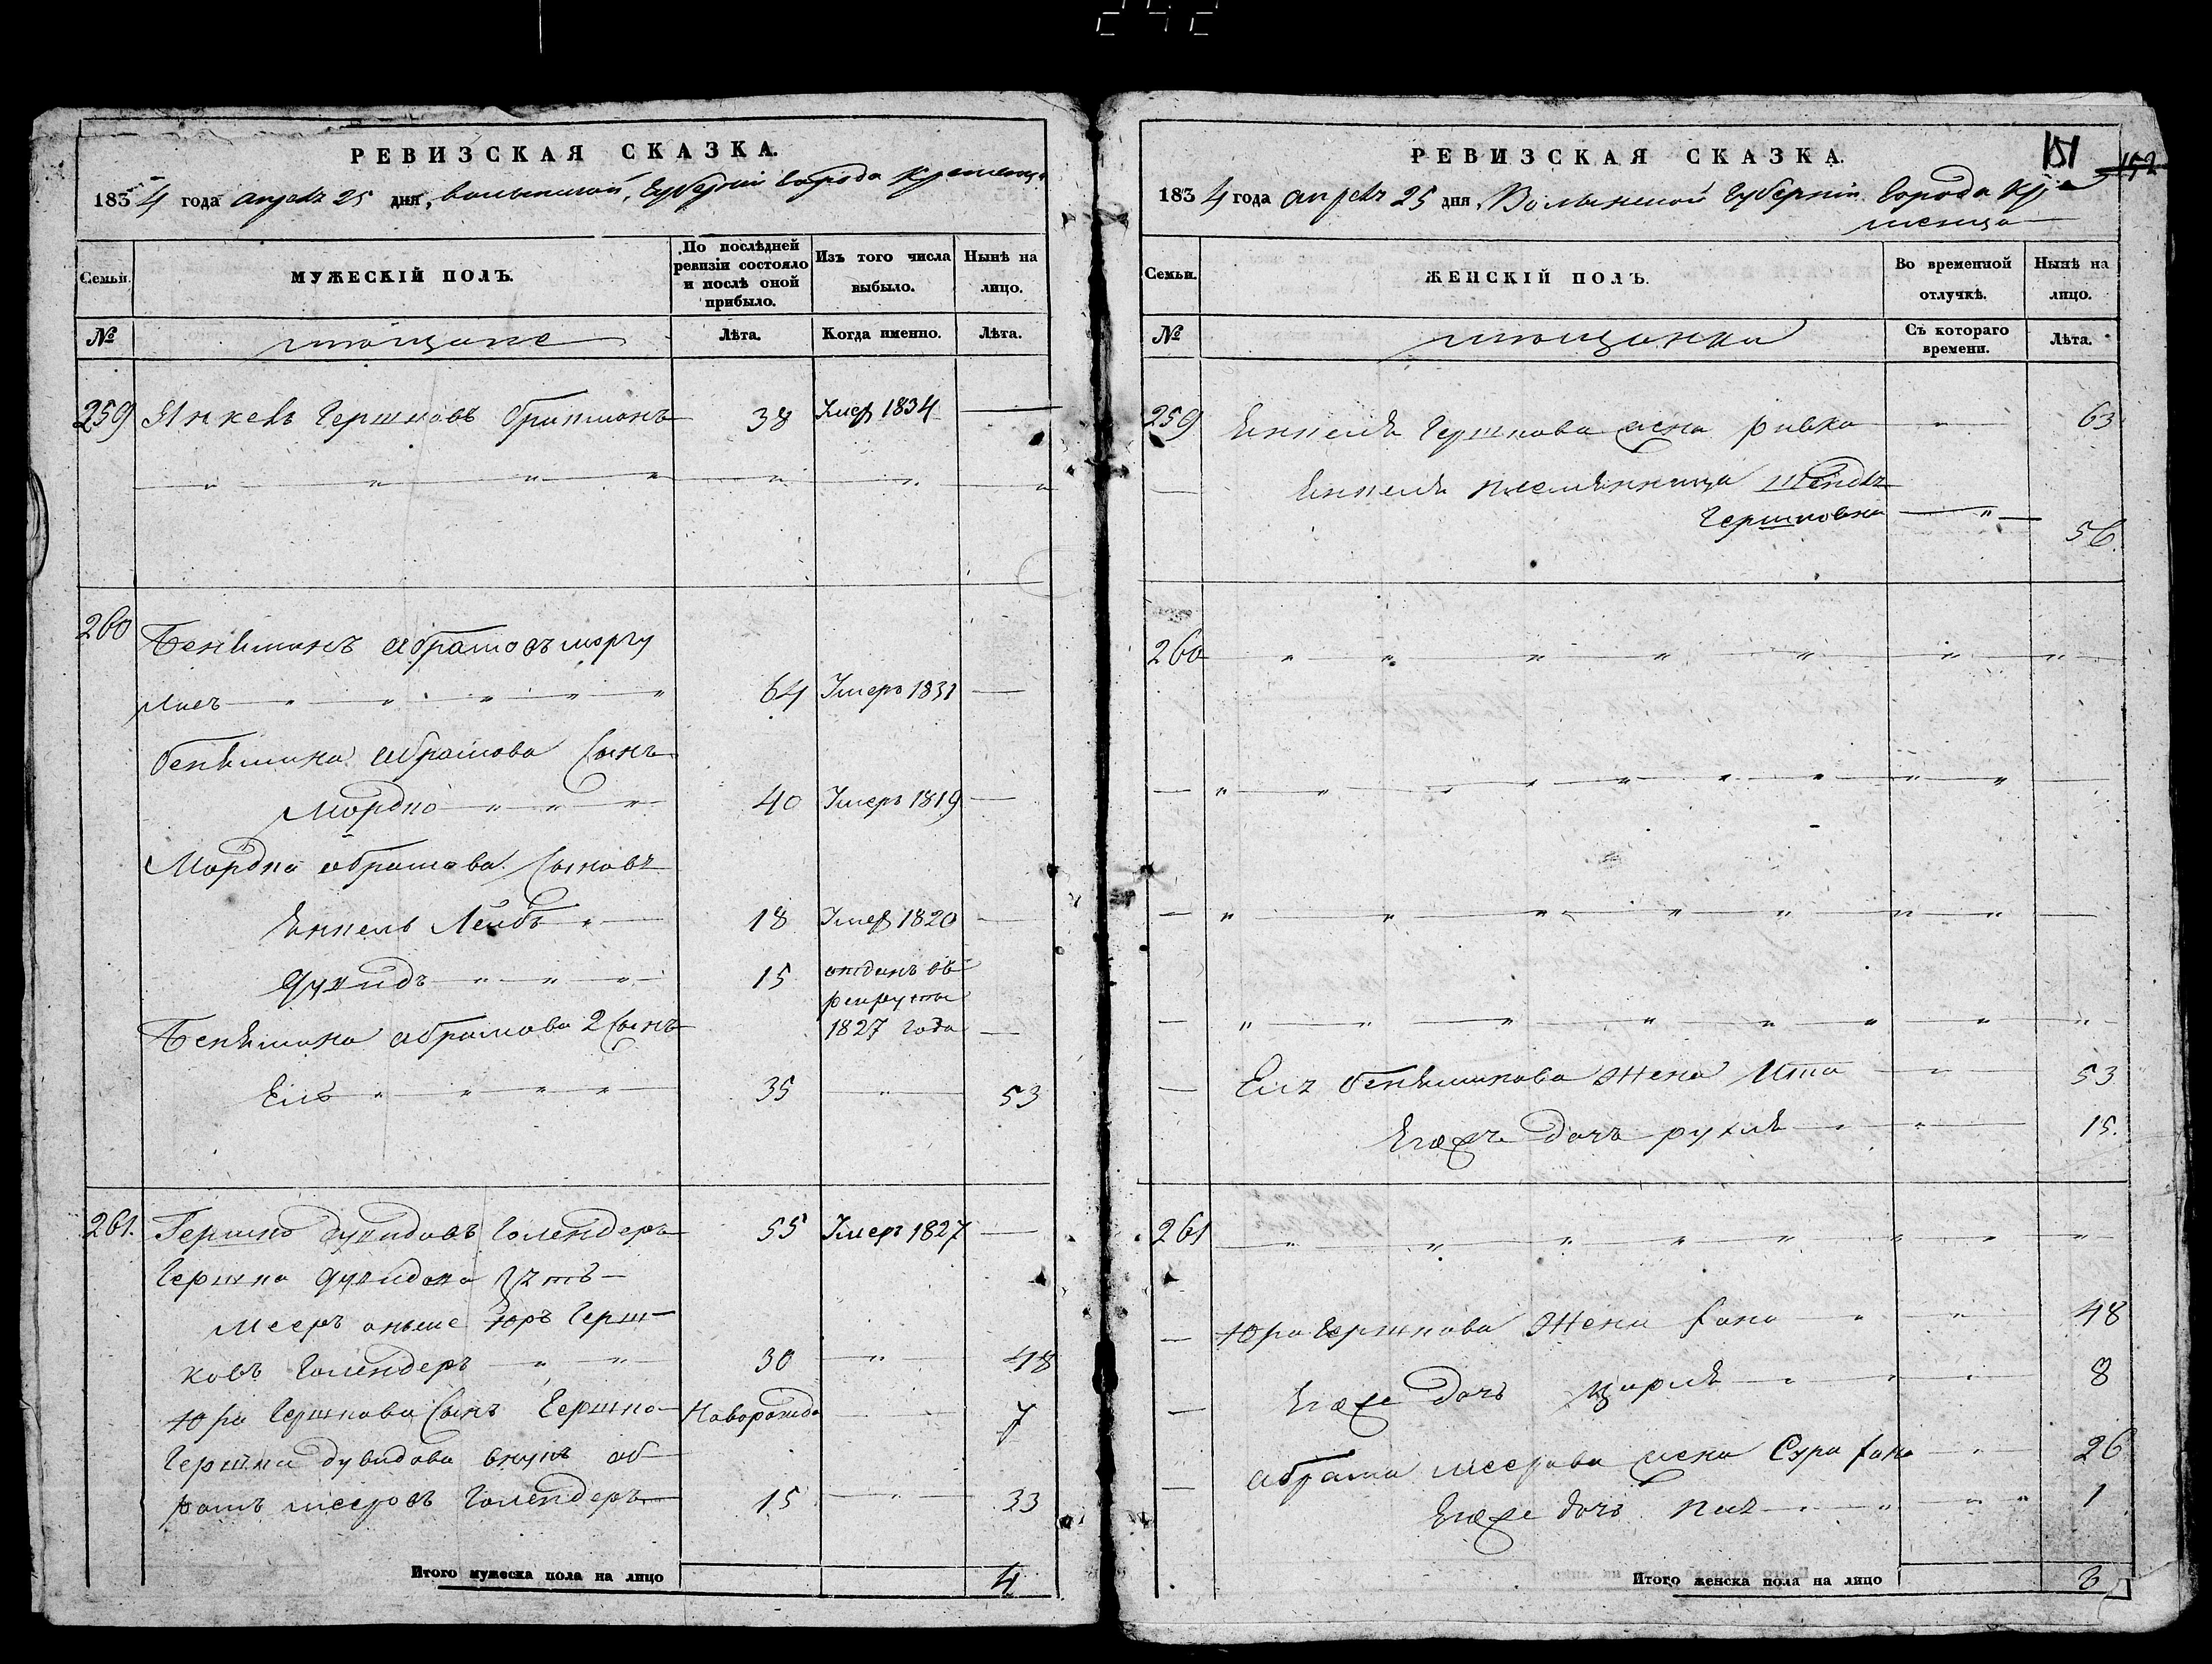 242
РЕВИЗСКАЯ СКАЗКА.
1834 года апреля 25 дня, Волынской Губернии Города Кременца
Семьи.
МУЖЕСКІЙ ПОЛЪ.
По послѣдней ревизіи состояло и послѣ оной прибыло.
Изъ того числа выбыло.
Нынѣ на лицо.
№
мѣщане
Лѣта.
Когда именно.
Лѣта.
259 Янкель Гершковъ 38 Умер 1834 —
260 Бенѣминъ Абрамовъ
64 Умеръ 1831 —
Бенѣмина Абрамова Сынъ
Мордко 40 Умеръ 1819 —
Мордка Абрамова Сыновъ
Лейбъ 18 Умер 1820 —
Дувидъ 15 отданъ въ
рекруты
1827 года —
Бенѣмина Абрамова 2 Сынъ
Ель 35 " 53
261. Гершко Дувидовъ Голендеръ 55 Умеръ 1827 —
Гершка Дувидова зять
Мееръ Юръ Герш-
ковъ Голендеръ 30 " 48
Юра Гершкова Сынъ Гершко Новорожд 7
Гершка Дувидова внукъ Аб-
рамъ Мееровъ Голендеръ 15 " 33
Итого мужеска пола на лицо 4
151
152
РЕВИЗСКАЯ СКАЗКА.
1834 года апрель 25 дня, Волынской Губерніи Города Кре
менца
Семьи.
ЖЕНСКІЙ ПОЛЪ.
Во временной отлучкѣ.
Нынѣ на лицо.
№
мѣщанки
Съ котораго времени.
Лѣта.
259 Гершкова жена Ривка " 63
племянница Шендля
Гершковна " 56
260
Еля Бенѣминова Жена Ита " 53
Егоже дочь Рухля " 15.
261
Юра Гершкова Жена Хана " 48
Егоже дочь Цирля " 8
Абрама Меерова жена Сура Хана " 26
Егоже дочь 1
Итого женска пола на лицо 8